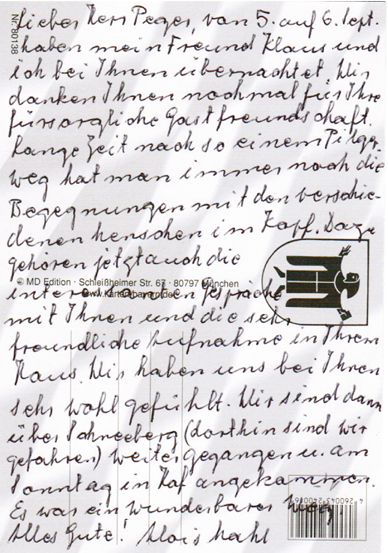 Lieber Herr Peger, von 5. auf 6. Sept.
haben mein Freund Klaus und
ich bei Ihnen übernachtet. Wir
danken Ihnen nochmal für Ihre
fürsorgliche Gastfreundschaft.
Lange Zeit nach so einem Pilger-
weg hat man immer noch die
Begegnungen mit den verschie-
denen Menschen im Kopf. Dazu
gehören jetzt auch die
interessanten Gespräche
mit Ihnen und die sehr
freundliche Aufnahme in Ihrem
Haus. Wir haben uns bei Ihnen
sehr wohl gefühlt. Wir sind dann
über Schneeberg (dorthin sind wir
gefahren) weiter gegangen u. am
Sonntag in Hof angekommen.
Es war ein wunderbarer Weg
Alles Gute! Alois Hahl
Nr. 80138
© MD Edition · Schleißheimer Str. 67 · 80797 München